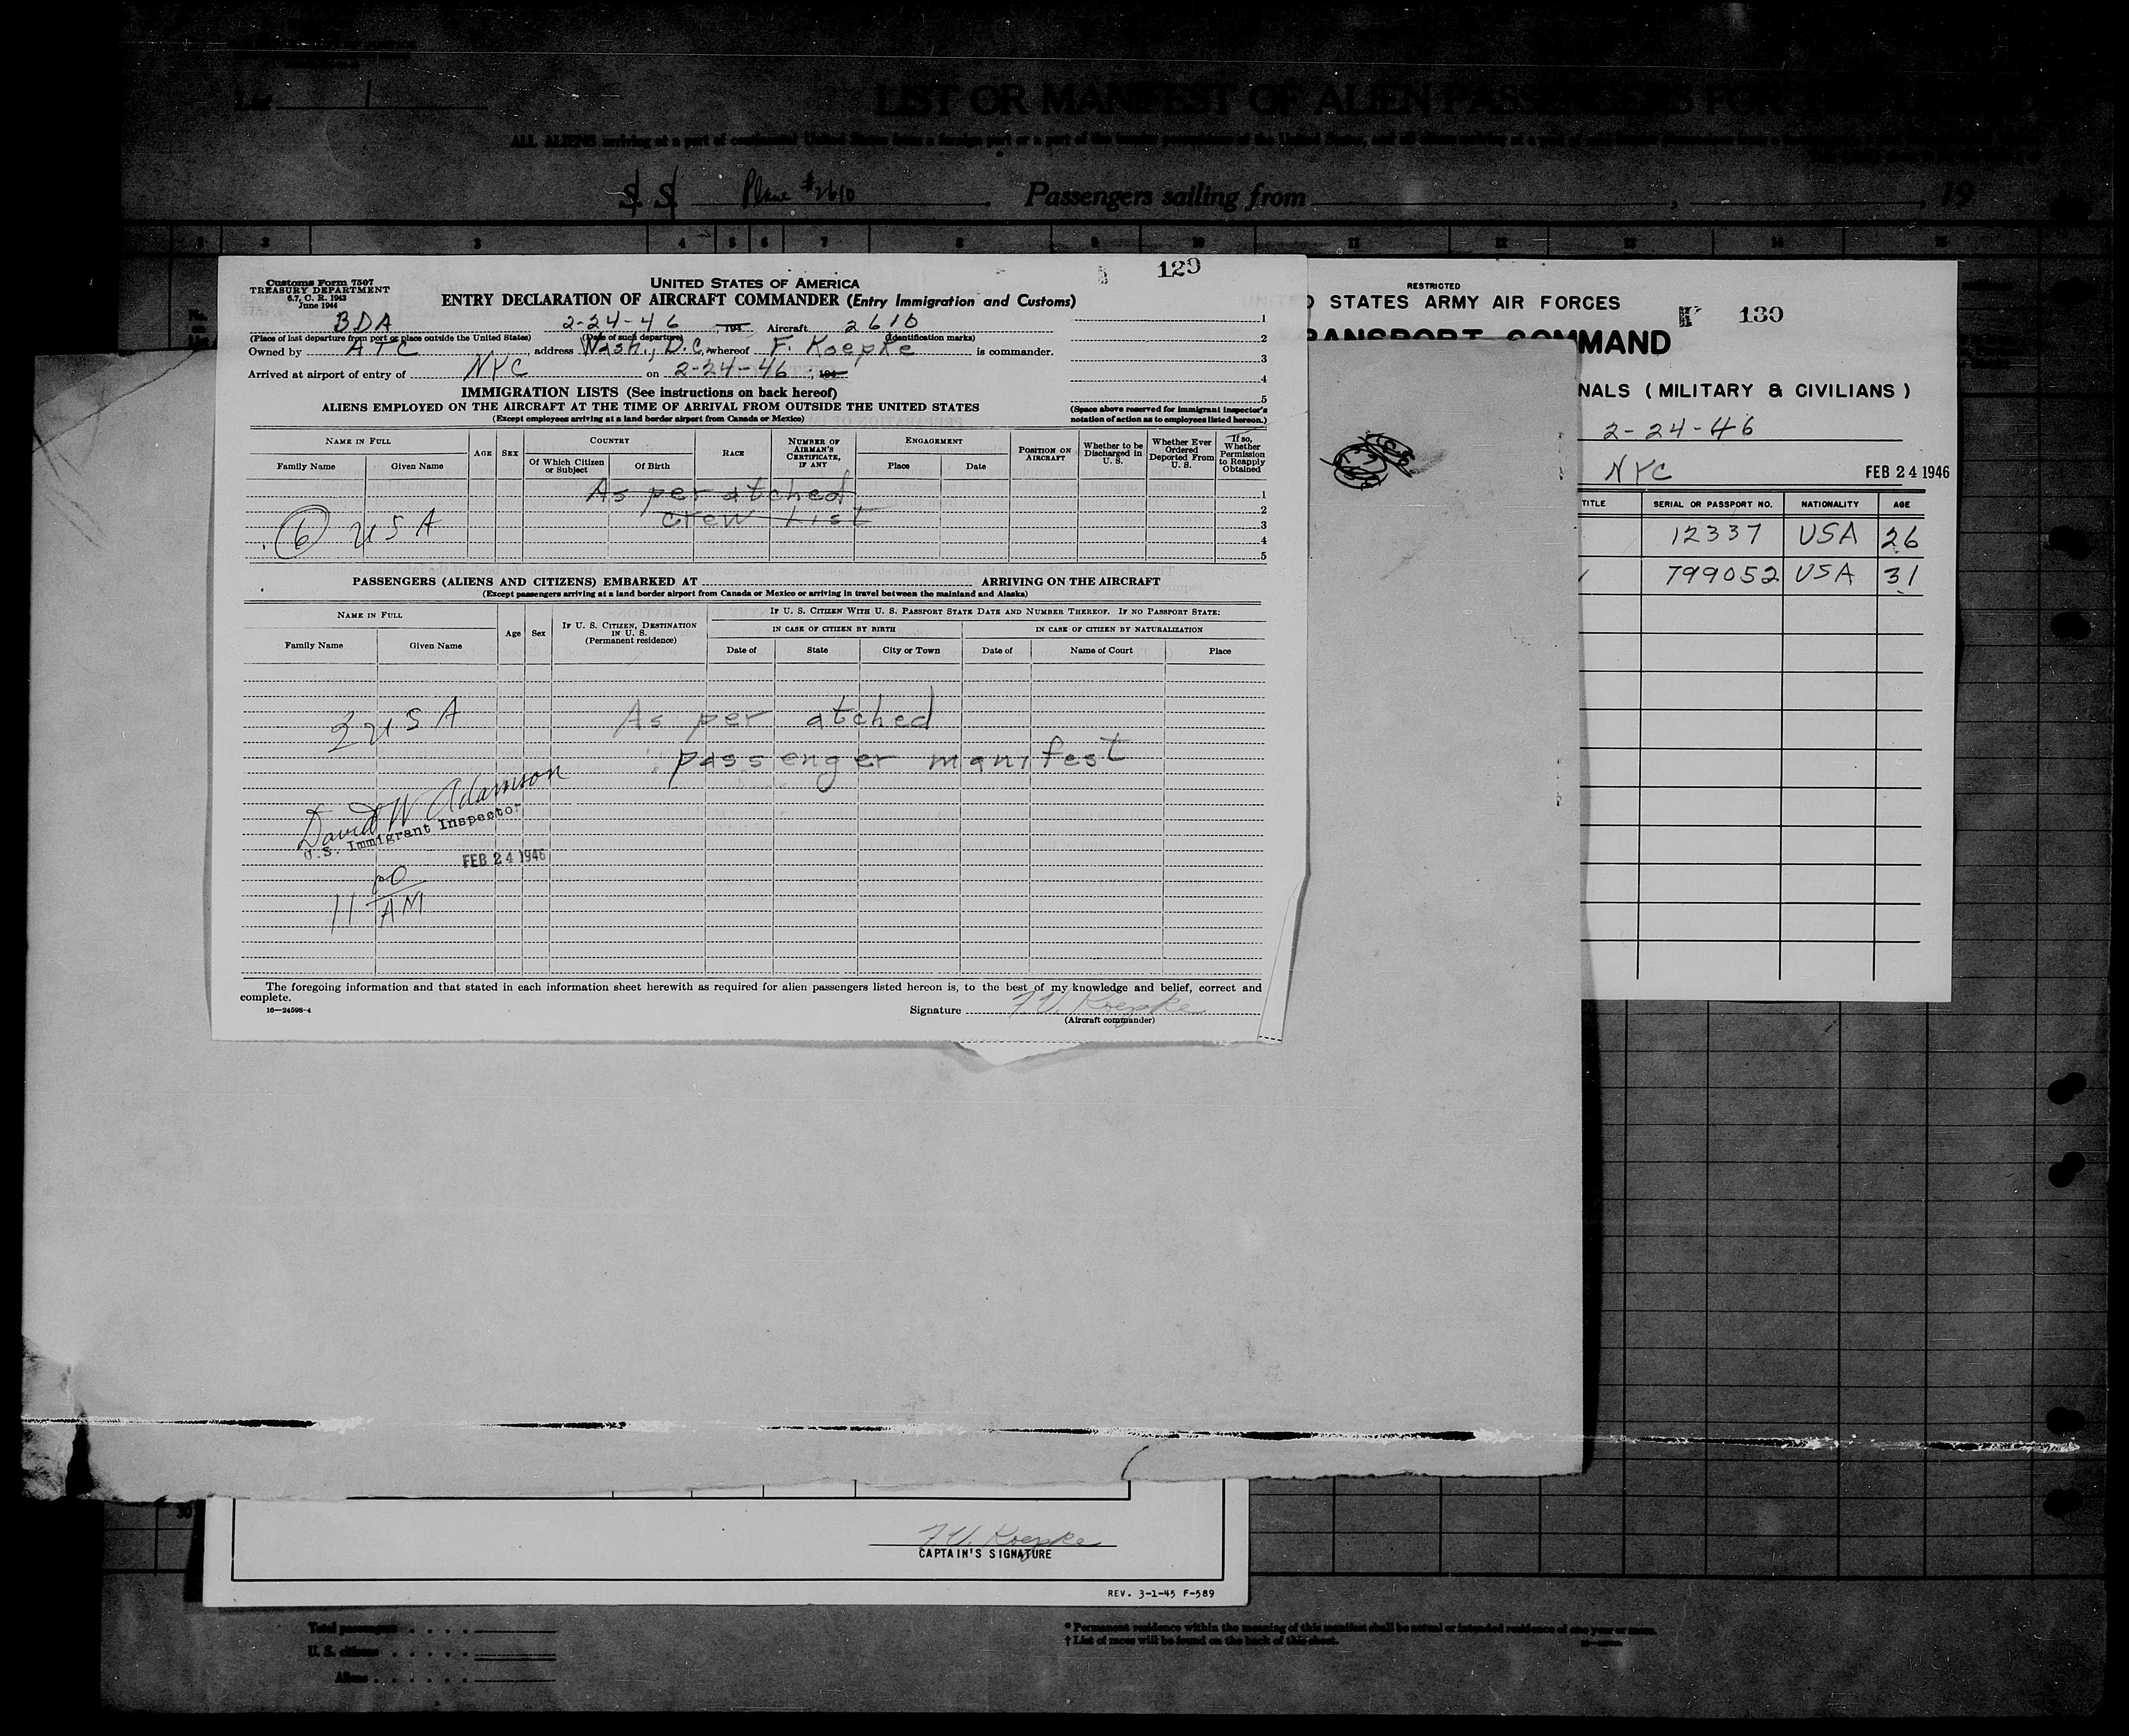 List 1
LIST OR MANIFEST OF ALIEN PASSENGERS FOR
ALL ALIENS arriving at a port of continental United States from a foreign port or a port of the insular possessions of the United States, and all aliens arriving at a port of said insular possessions from a foreign port
S. S. Plane #2610 Passengers sailing from , 19
1 2 3 4 5 6 7 8 9 10 11 12 13 14 15
129
Customs Form 7507
TREASURY DEPARTMENT
6.7, C. R. 1943
June 1944
UNITED STATES OF AMERICA
ENTRY DECLARATION OF AIRCRAFT COMMANDER (Entry Immigration and Customs)
BDA 2-24-46 , 194 Aircraft 2610
(Place of last departure from port or place outside the United States) (Date of such departure) (Identification marks)
Owned by ATC , address Wash., D.C. , whereof F. Koepke is commander.
Arrived at airport of entry of NYC on 2-24-46 , 194
1
2
3
4
5
IMMIGRATION LISTS (See instructions on back hereof)
ALIENS EMPLOYED ON THE AIRCRAFT AT THE TIME OF ARRIVAL FROM OUTSIDE THE UNITED STATES
(Except employees arriving at a land border airport from Canada or Mexico)
(Space above reserved for immigrant inspector's notation of action as to employees listed hereon.)
NAME IN FULL AGE SEX COUNTRY RACE NUMBER OF AIRMAN'S CERTIFICATE, IF ANY ENGAGEMENT POSITION ON AIRCRAFT Whether to be Discharged in U. S. Whether Ever Ordered Deported From U. S. If so, Whether Permission to Reapply Obtained
Family Name Given Name Of Which Citizen or Subject Of Birth Place Date
As per atched 1
crew list 2
6 USA 3
4
5
PASSENGERS (ALIENS AND CITIZENS) EMBARKED AT ARRIVING ON THE AIRCRAFT
(Except passengers arriving at a land border airport from Canada or Mexico or arriving in travel between the mainland and Alaska)
NAME IN FULL Age Sex IF U. S. CITIZEN, DESTINATION IN U. S. (Permanent residence) IF U. S. CITIZEN WITH U. S. PASSPORT STATE DATE AND NUMBER THEREOF. IF NO PASSPORT STATE:
IN CASE OF CITIZEN BY BIRTH IN CASE OF CITIZEN BY NATURALIZATION
Family Name Given Name Date of State City or Town Date of Name of Court Place
2 USA As per atched
passenger manifest
David W Adamson
U.S. Immigrant Inspector
FEB 24 1946
11 00 AM
The foregoing information and that stated in each information sheet herewith as required for alien passengers listed hereon is, to the best of my knowledge and belief, correct and
complete.
16—24598-4
Signature F. V. Koepke
(Aircraft commander)
RESTRICTED
D STATES ARMY AIR FORCES
130
TRANSPORT COMMAND
NALS (MILITARY & CIVILIANS)
2-24-46
NYC FEB 24 1946
TITLE SERIAL OR PASSPORT NO. NATIONALITY AGE
12337 USA 26
799052 USA 31
30
F. V. Koepke
CAPTAIN'S SIGNATURE
REV. 3-1-45 F-589
Total passengers
U. S. citizens
Aliens
* Permanent residence within the meaning of this manifest shall be actual or intended residence of one year or more.
† List of races will be found on the back of this sheet.